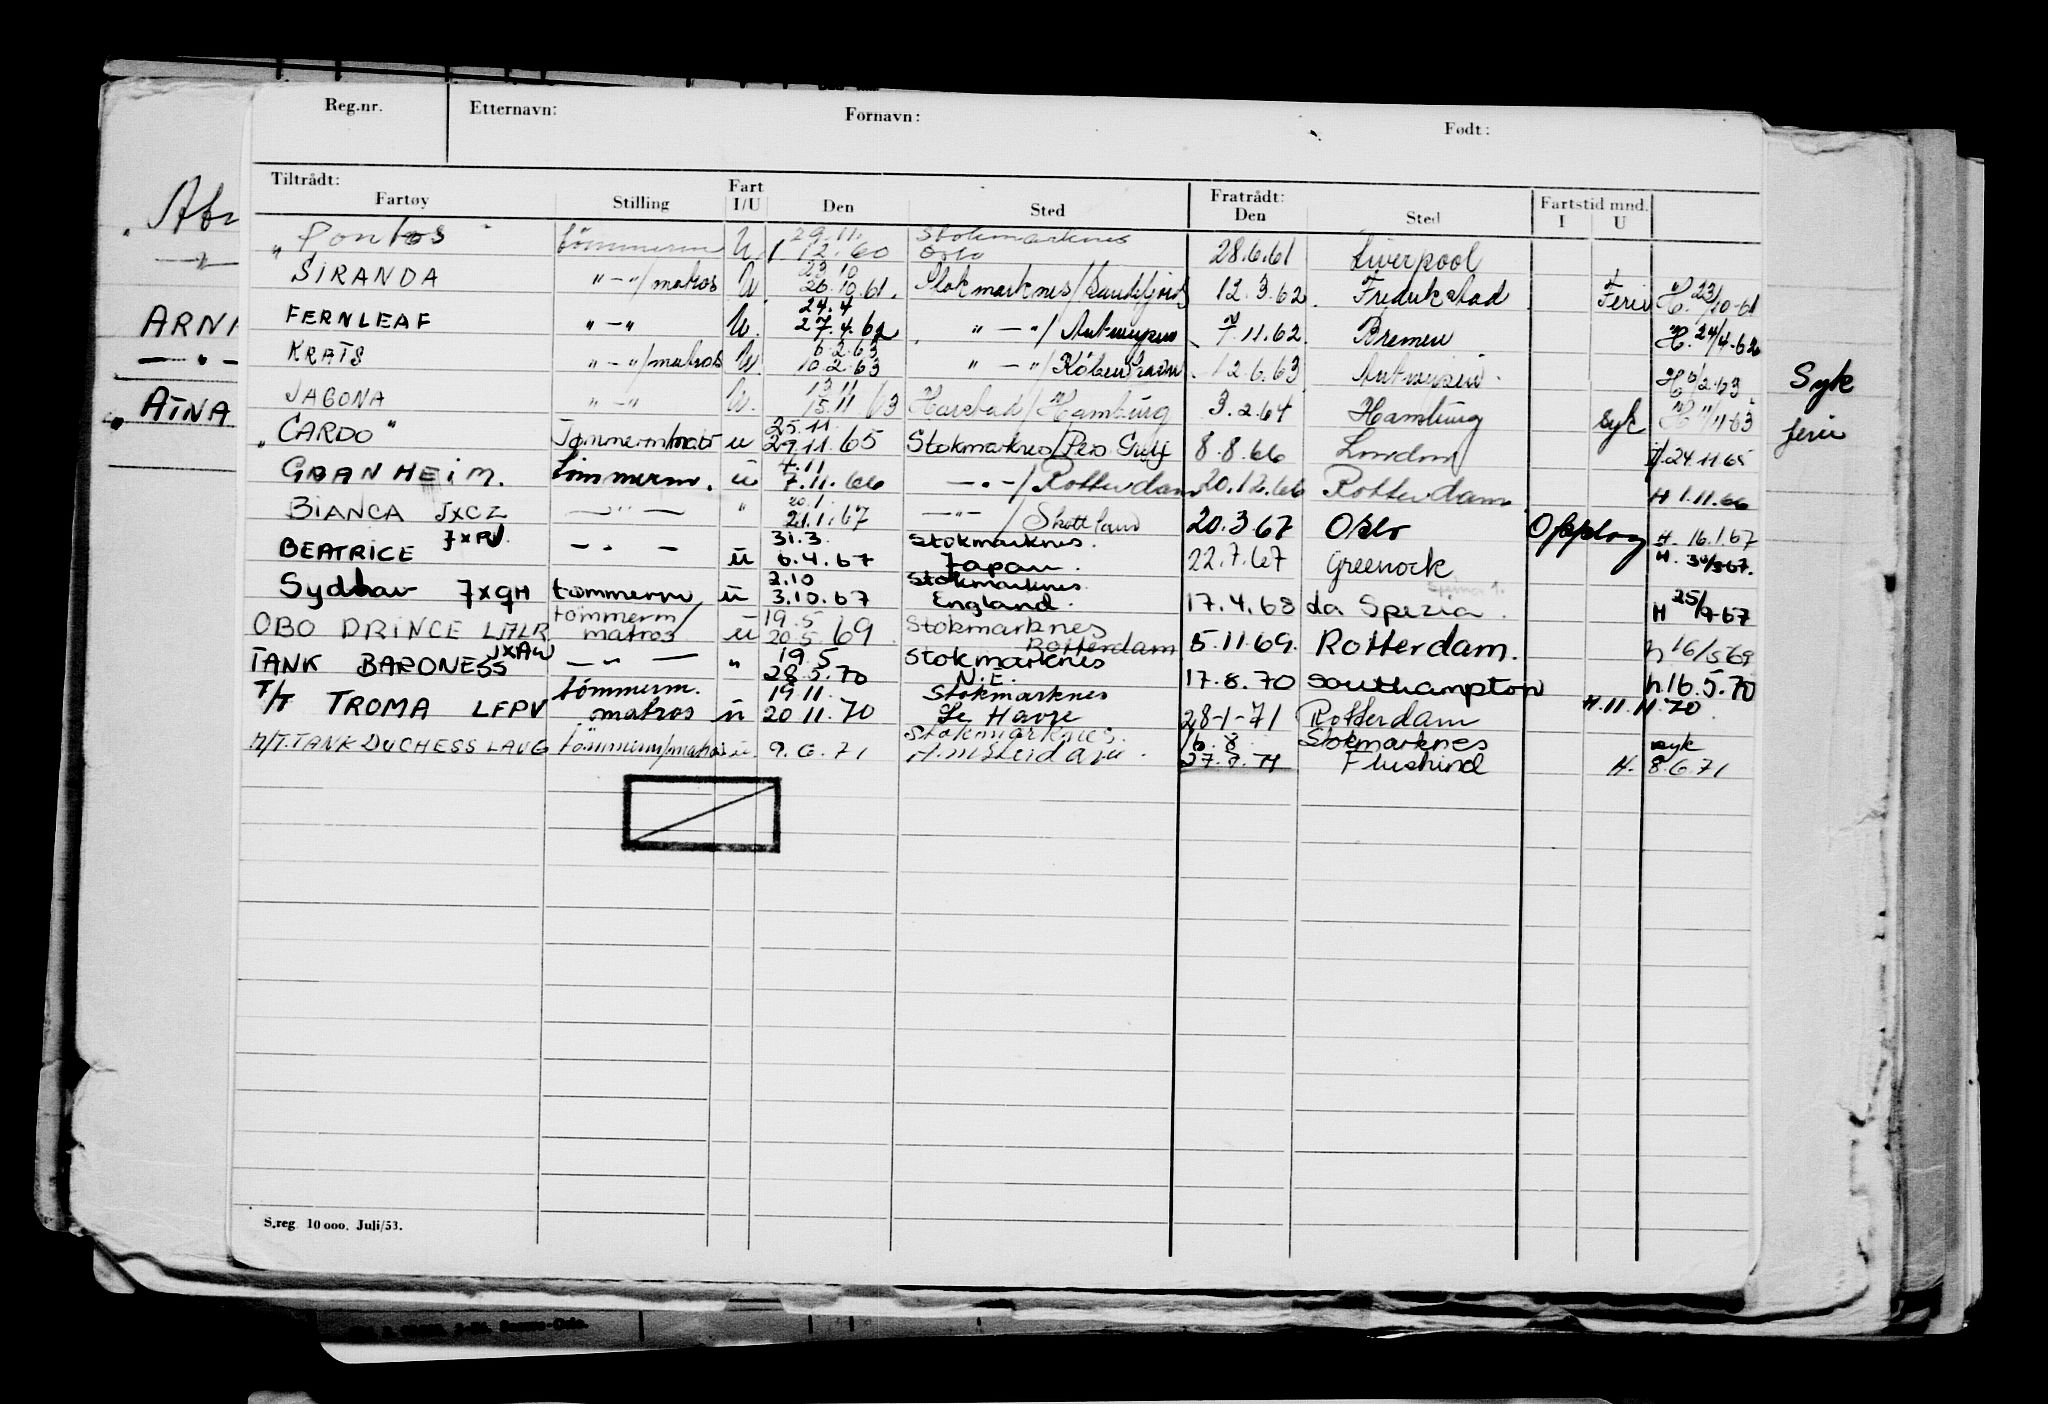 Reg.nr. Etternavn: Fornavn: Født:
Tiltrådt: Fartøy Stilling Fart I/U Den Sted Fratrådt: Den Sted Fartstid mnd. I U
" Pontos tömmerm U 29.11. 1.12.60 Stokmarknes Oslo 28.6.61 Liverpool
SIRANDA "-"/matros U. 23.10 26.10.61. Stokmarknes/Sandefjord 12.3.62. Fredrikstad Ferie H. 23/10-61
FERNLEAF "-" U. 24.4 27.4.62 "-"/Antwerpen 7.11.62. Bremen H. 24/4-62
KRATS "-"/matros U. 6.2.63 10.2.63 "-"/Köbenhavn 12.6.63 Antwerpen H 6/2-63
JAGONA "-" U. 13/11 15.11 63 Harstad/Hamburg 3.2.64 Hamburg syk H 11/11-63
" CARDO " Tømmerm/matr u 25.11 29.11.65 Stokmarknes/Pers Gulf 8.8.66 London H. 24.11.65
GRANHEIM. tömmerm. u 4.11 7.11.66 -"-/Rotterdam 20.12.66 Rotterdam H 1.11.66
BIANCA JXCZ -"- " 20.1 21.1.67 -"-/Skottland 20.3.67 Oslo Opplag H. 16.1.67
BEATRICE -"- u 31.3. 6.4.67 Stokmarknes. Japan. 22.7.67 Greenock H. 30/3-67.
Sydhav JXGH tømmerm u 2.10 3.10.67 Stokmarknes England. 17.4.68 La Spezia H 25/9-67
OBO PRINCE LMLR tømmerm/matros u 19.5 20.5.69 Stokmarknes Rotterdam 5.11.69. Rotterdam. h 16/5 69
TANK BARONESS JXAW -"- " 19.5 28.5.70 Stokmarknes N.E. 17.8.70 Southampton h 16.5.70
T/T TROMA LFPV tömmerm. matros u 19.11. 20.11.70 Stokmarknes Le Havre 28-1-71 Rotterdam H. 11.11.70.
M/T. TANK DUCHESS LAUG tömmerm/matros u. 9.6.71 Stokmarknes. Amsterdam. 16.8. Stokmarknes syk
27.7.71 Flushind H. 8.6.71
ARN
AINA
Syk
ferie
S.reg. 10 000. Juli/53.